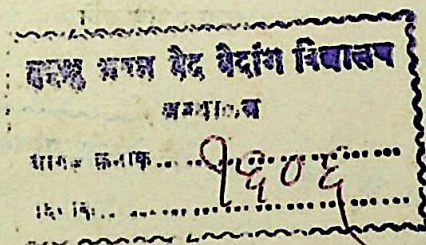 मुमुक्षु भवन वेद वेदांग विद्यालय
ग्रन्थालय
आगत क्रमांक.. १६०६
दिनांक